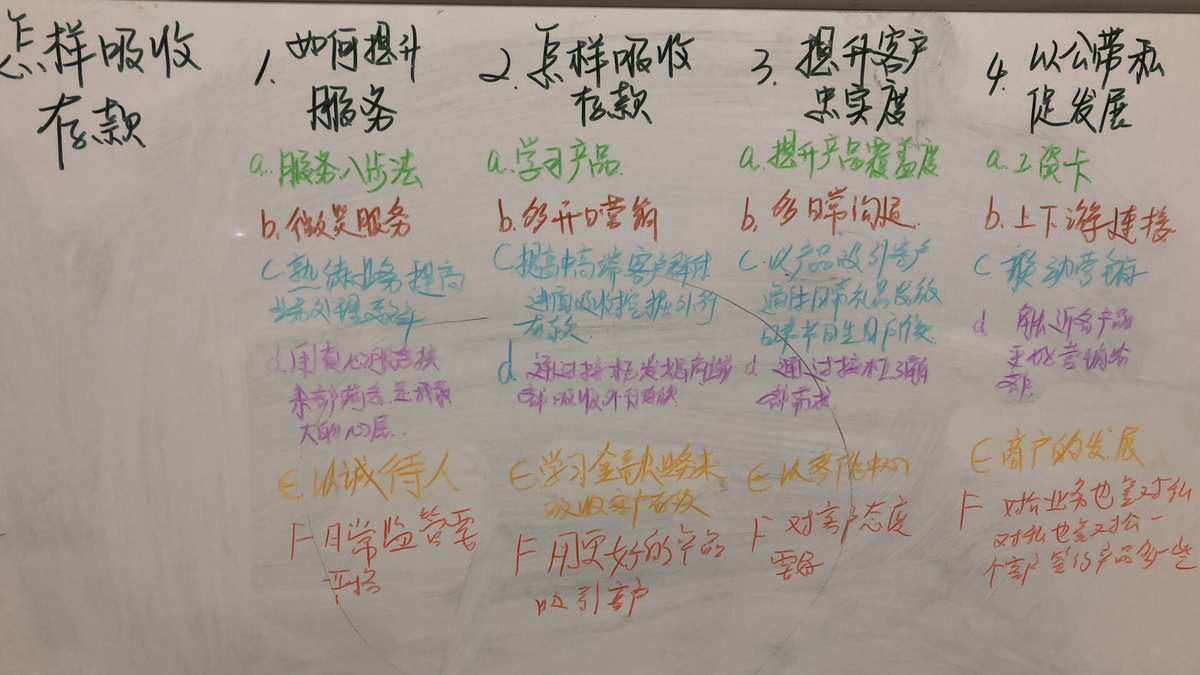 怎样吸收
存款
1. 如何提升
服务
a. 服务八步法
b. 微笑服务
C 熟练业务提高
业务处理效率
d. 用真心
大的
E. 以诚待人
F 日常监管要
严格
2. 怎样吸收
存款
a. 学习产品
b. 多开口营销
C 提高中高端客户群体
进而吸收挖掘外行
存款
d. 通过
吸收外行存款
E 学习金融业务来
吸收客户存款
F 用更好的产品
吸引客户
3. 提升客户
忠实度
a. 提升产品覆盖度
b. 多日常沟通
C. 以产品吸引客户
日常礼品发放
节日生日
d 通过
客户需求
E 以客户为中心
F 对客户态度
要好
4. 以公带私
促发展
a. 工资卡
b. 上下游连接
C 联动营销
d. 产品
营销
E 商户的发展
F 对公业务也要对私
对私也要对公一
个客户签约产品多一些